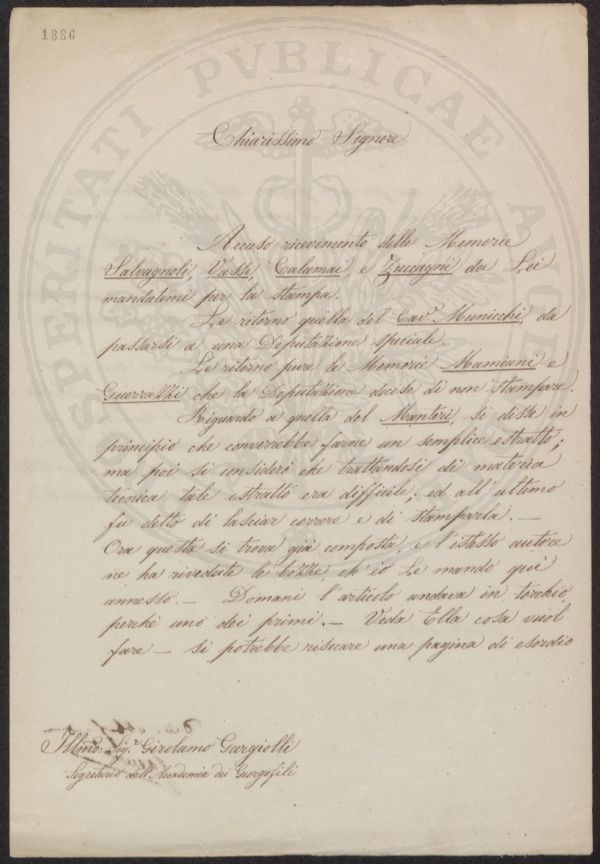 1886
PROSPERITATI PVBLICAE AVGE
Chiarissimo Signore
Accuso ricevimento delle Memorie
Salvagnoli, Vasse, Calamai, e Zuccagni da Lei
mandatemi per la stampa.
Le ritorno quella del Cav.e Municchi, da
passarsi a una Deputazione speciale.
Le ritorno pure le Memorie Mamiani e
Guerrazzi che la Deputazione decise di non stampare.
Riguardo a quella del Manteri, si disse in
principio che converrebbe farne un semplice estratto;
ma poi si considerò che trattandosi di materia
tecnica tale estratto era difficile, ed all'ultimo
fu detto di lasciar correre e di stamparla. —
Ora questa si trova già composta, e l'istesso autore
ne ha rivedute le bozze, ch'io Le mando qui
annesso — Domani l'articolo andava in torchio,
perché uno dei primi. — Veda Ella cosa vuol
fare — si potrebbe risecare una pagina di esordio
Illmo. Sig. Girolamo Gargiolli
Segretario dell'Accademia dei Georgofili